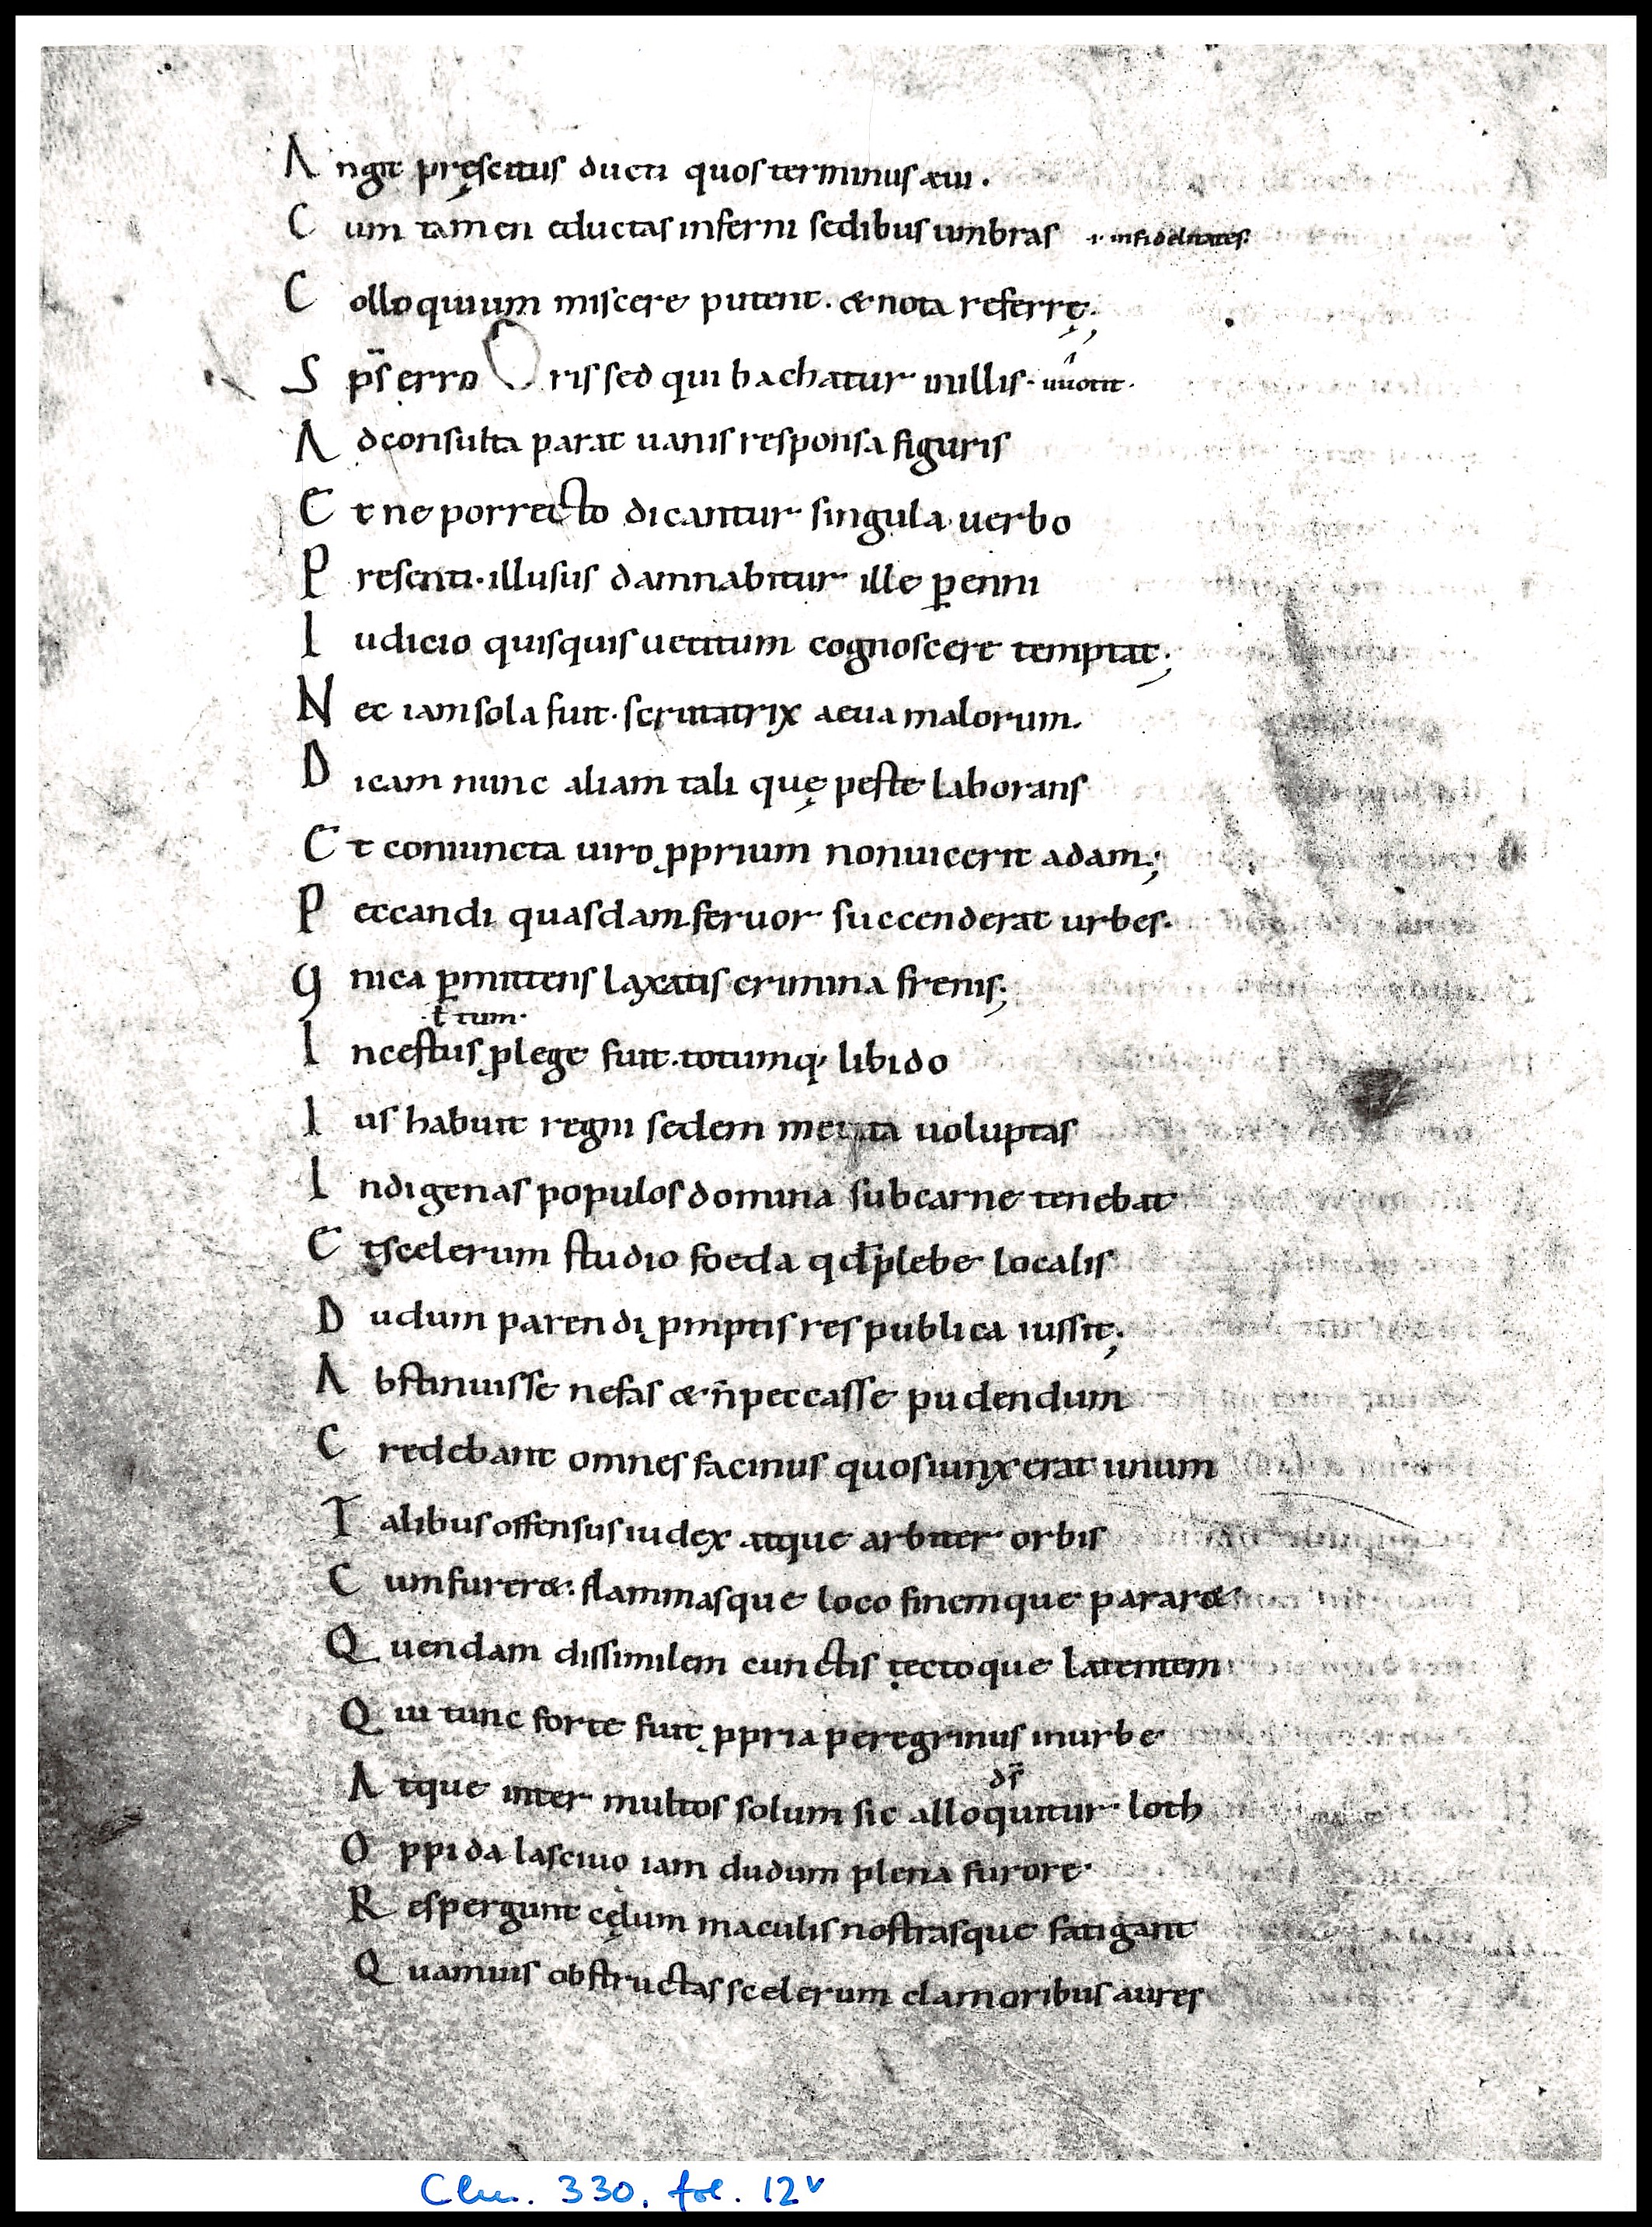 Angit pręscitus ducti quos terminus ævi.
Cum tamen eductas inferni sedibus umbras .i. infidelitates.
Colloquium miscere putent. & nota referrę;
Sp̄s erroris sed qui bachatur in illis. uł uouit.
Ad consulta parat uanis responsa figuris
Et ne porrecto dicantur singula uerbo
Presenti. illusus damnabitur ille ꝑenni
Iudicio quisquis uetitum cognoscere temptat;
Nec iam sola fuit. scrutatrix aeua malorum.
Dicam nunc aliam tali quę peste laborans
Et coniuncta uiro ꝓprium non uicerit adam;
Peccandi quasdam feruor succenderat urbes.
Ignica ꝑmittens laxatis crimina frenis;
.ł tum.
Incestus ꝓ lege fuit. totumq; libido
Ius habuit regni sedem me ta uoluptas
Indigenas populos domina sub carne tenebat
Et scelerum studio foeda qđ plebe localis
Dudum parendi ꝓmptis res publica iussit;
Abstinuisse nefas & n̄ peccasse pudendum
Credebant omnes facinus quos iunxerat unum
Talibus offensus iudex atque arbiter orbis
Cum furer&. flammasque loco finemque parar&
Quendam dissimilem cunctis tectoque latentem
Qui tunc forte fuit ꝓpria peregrinus in urbe
dr̄
Atque inter multos solum sic alloquitur loth
Oppida lasciuo iam dudum plena furore
Respergunt cęlum maculis nostrasque fatigant
Quamuis obstructas scelerum clamoribus aures
Clm. 330. fol. 12v